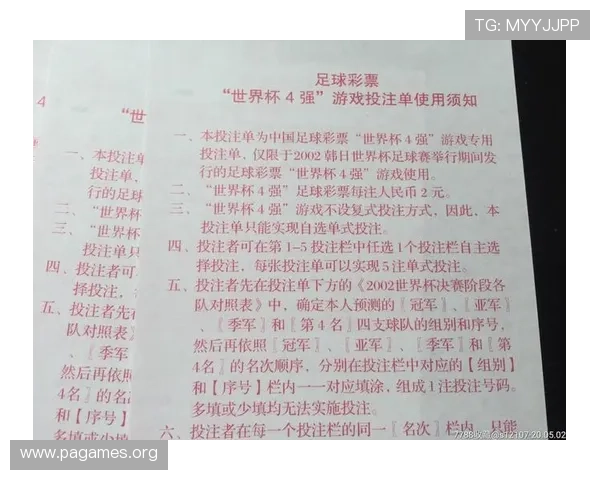 TG: MYYJJPP
足球彩票
“世界杯 4 强”游戏投注单使用须知
一、本投注单为中国足球彩票“世界杯 4 强”游戏专用
投注单，仅限于2002 韩日世界杯足球赛举行期间发
行的足球彩票“世界杯 4 强”游戏使用。
二、“世界杯 4 强”足球彩票每注人民币 2 元。
三、“世界杯 4 强”游戏不设复式投注方式，因此，本
投注单只能实现自选单式投注。
四、投注者可在第 1–5 投注栏中任选 1个投注栏自主选
择投注，每张投注单可以实现 5 注单式投注。
五、投注者先在投注单下方的《2002世界杯决赛阶段各
队对照表》中，确定本人预测的〖冠军〗、〖亚军〗
、〖季军〗和〖第 4 名〗四支球队的组别和序号，
然后再依照〖冠军〗、〖亚军〗、〖季军〗和〖第
4名〗的名次顺序，分别在投注栏中对应的【组别】
和【序号】栏内一一对应填涂，组成 1 注投注号码。
多填或少填均无法实施投注。
六、投注者在每一个投注栏的同一〖名次〗栏内，只能
4
“世
一、本投注单
投注单，
行的足球
二、“世界杯
三、“世界杯
投注单只
四、投注者可
择投注，
五、投注者先
队对照表》
、〖季军
然后再依照
4名〗的名
和【序号】
多填或少填
7788收藏@s12107-20.05.02
www.pagames.org